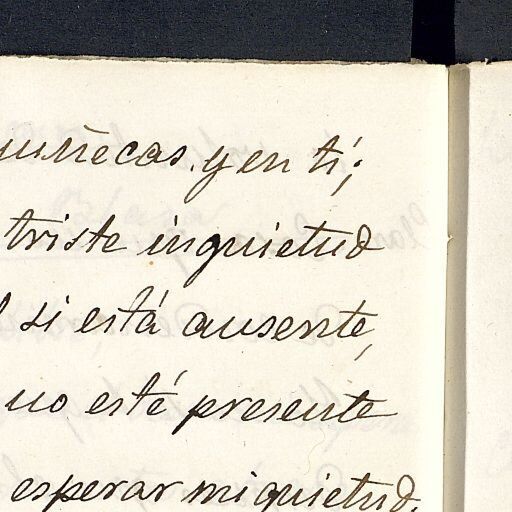 muñecas y en tí;
triste inquietud
si está ausente,
no esté presente
esperar mi quietud.